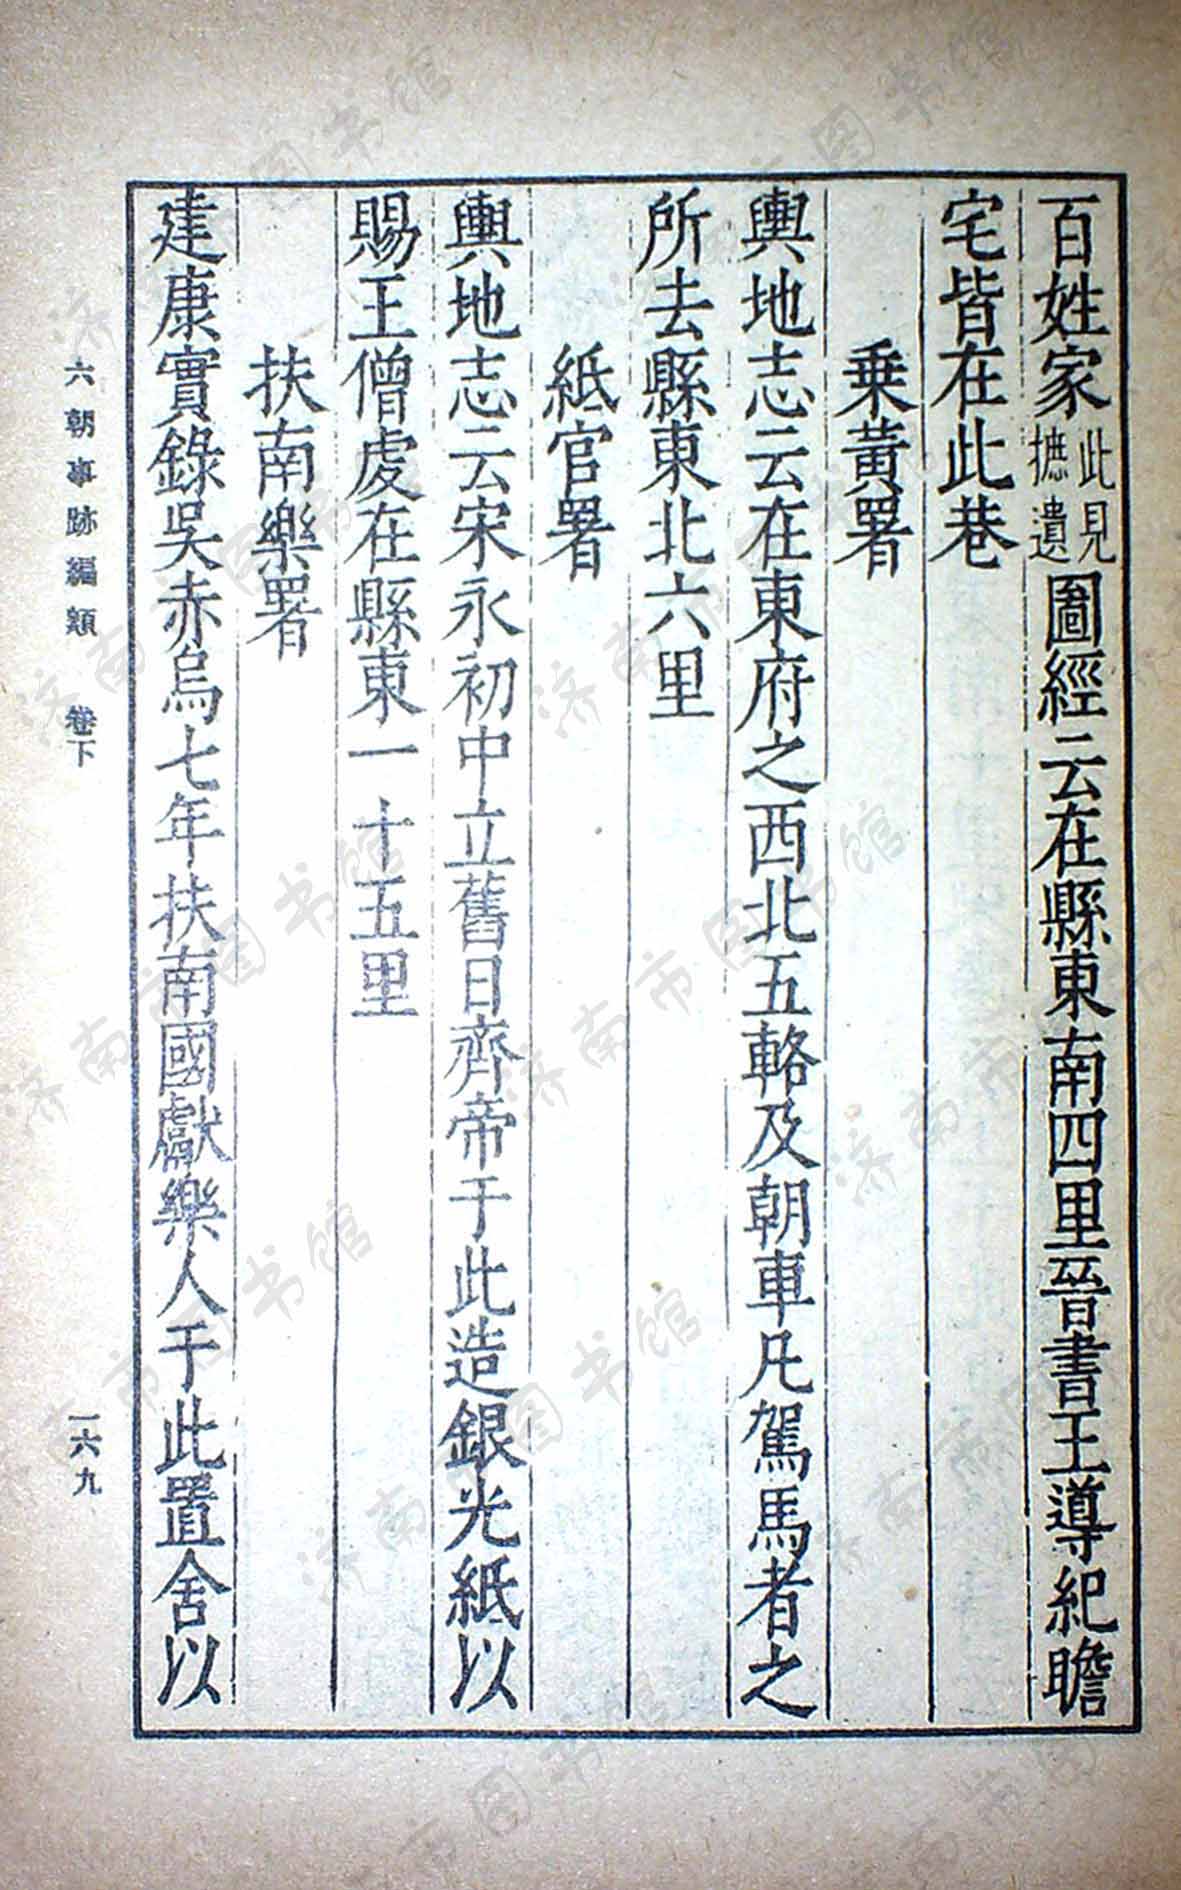 百姓家此見摭遺圖經云在縣東南四里晉書王導紀瞻
宅皆在此巷
乗黃署
輿地志云在東府之西北五輅及朝車凡駕馬者之
所去縣東北六里
紙官署
輿地志云宋永初中立舊日齊帝于此造銀光紙以
賜王僧虔在縣東一十五里
扶南樂署
建康實錄吳赤烏七年扶南國獻樂人于此置舍以
六朝事跡編類 卷下
一六九
济南市图书馆